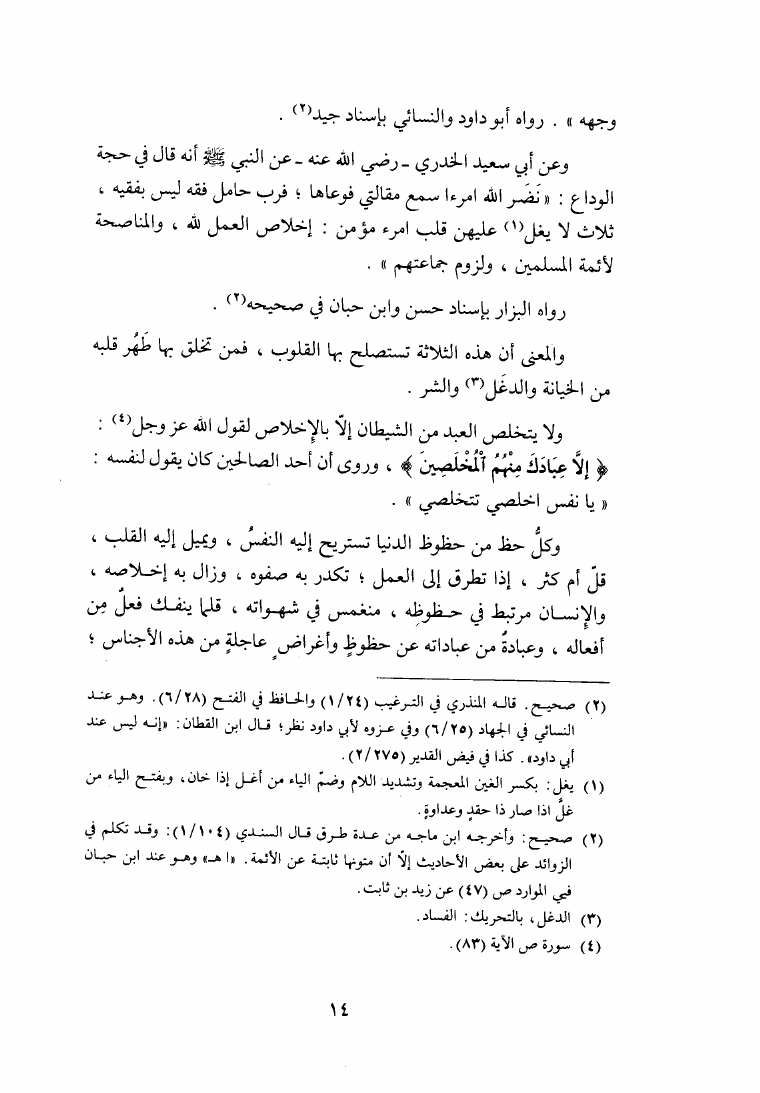 وجهه » . رواه أبو داود والنسائي بإسناد جيد(٢) .
وعن أبي سعيد الخدري ـ رضي الله عنه ـ عن النبي ﷺ أنه قال في حجة
الوداع : « نَضَّر الله امرءا سمع مقالتي فوعاها ؛ فرب حامل فقه ليس بفقيه ،
ثلاث لا يغل(١) عليهن قلب امرء مؤمن : إخلاص العمل لله ، والمناصحة
لأئمة المسلمين ، ولزوم جماعتهم » .
رواه البزار بإسناد حسن وابن حبان في صحيحه(٢) .
والمعنى أن هذه الثلاثة تستصلح بها القلوب ، فمن تخلق بها طَهُر قلبه
من الخيانة والدغَل(٣) والشر .
ولا يتخلص العبد من الشيطان إلاّ بالإخلاص لقول الله عز وجل(٤) :
﴿ إِلَّا عِبَادَكَ مِنْهُمُ ٱلْمُخْلَصِينَ ﴾ ، وروى أن أحد الصالحين كان يقول لنفسه :
« يا نفس اخلصي تتخلصي » .
وكلُّ حظ من حظوظ الدنيا تستريح إليه النفسُ ، ويميل إليه القلب ،
قلّ أم كثر ، إذا تطرق إلى العمل ؛ تكدر به صفوه ، وزال به إخلاصه ،
والإنسان مرتبط في حظوظه ، منغمس في شهواته ، قلما ينفك فعلٌ مِن
أفعاله ، وعبادةٌ من عباداته عن حظوظٍ وأغراضٍ عاجلةٍ من هذه الأجناس ؛
(٢) صحيح. قاله المنذري في الترغيب (١/٢٤) والحافظ في الفتح (٦/٢٨). وهو عند
النسائي في الجهاد (٦/٢٥) وفي عزوه لأبي داود نظر؛ قال ابن القطان: «إنه ليس عند
أبي داود». كذا في فيض القدير (٢/٢٧٥).
(١) يغل: بكسر الغين المعجمة وتشديد اللام وضمّ الياء من أغل إذا خان، وبفتح الياء من
غلّ اذا صار ذا حقدٍ وعداوةٍ.
(٢) صحيح: وأخرجه ابن ماجه من عدة طرق قال السندي (١/١٠٤): وقد تكلم في
الزوائد على بعض الأحاديث إلاّ أن متونها ثابتة عن الأئمة. «ا هـ» وهو عند ابن حبان
فيي الموارد ص (٤٧) عن زيد بن ثابت.
(٣) الدغل، بالتحريك: الفساد.
(٤) سورة ص الآية (٨٣).
١٤